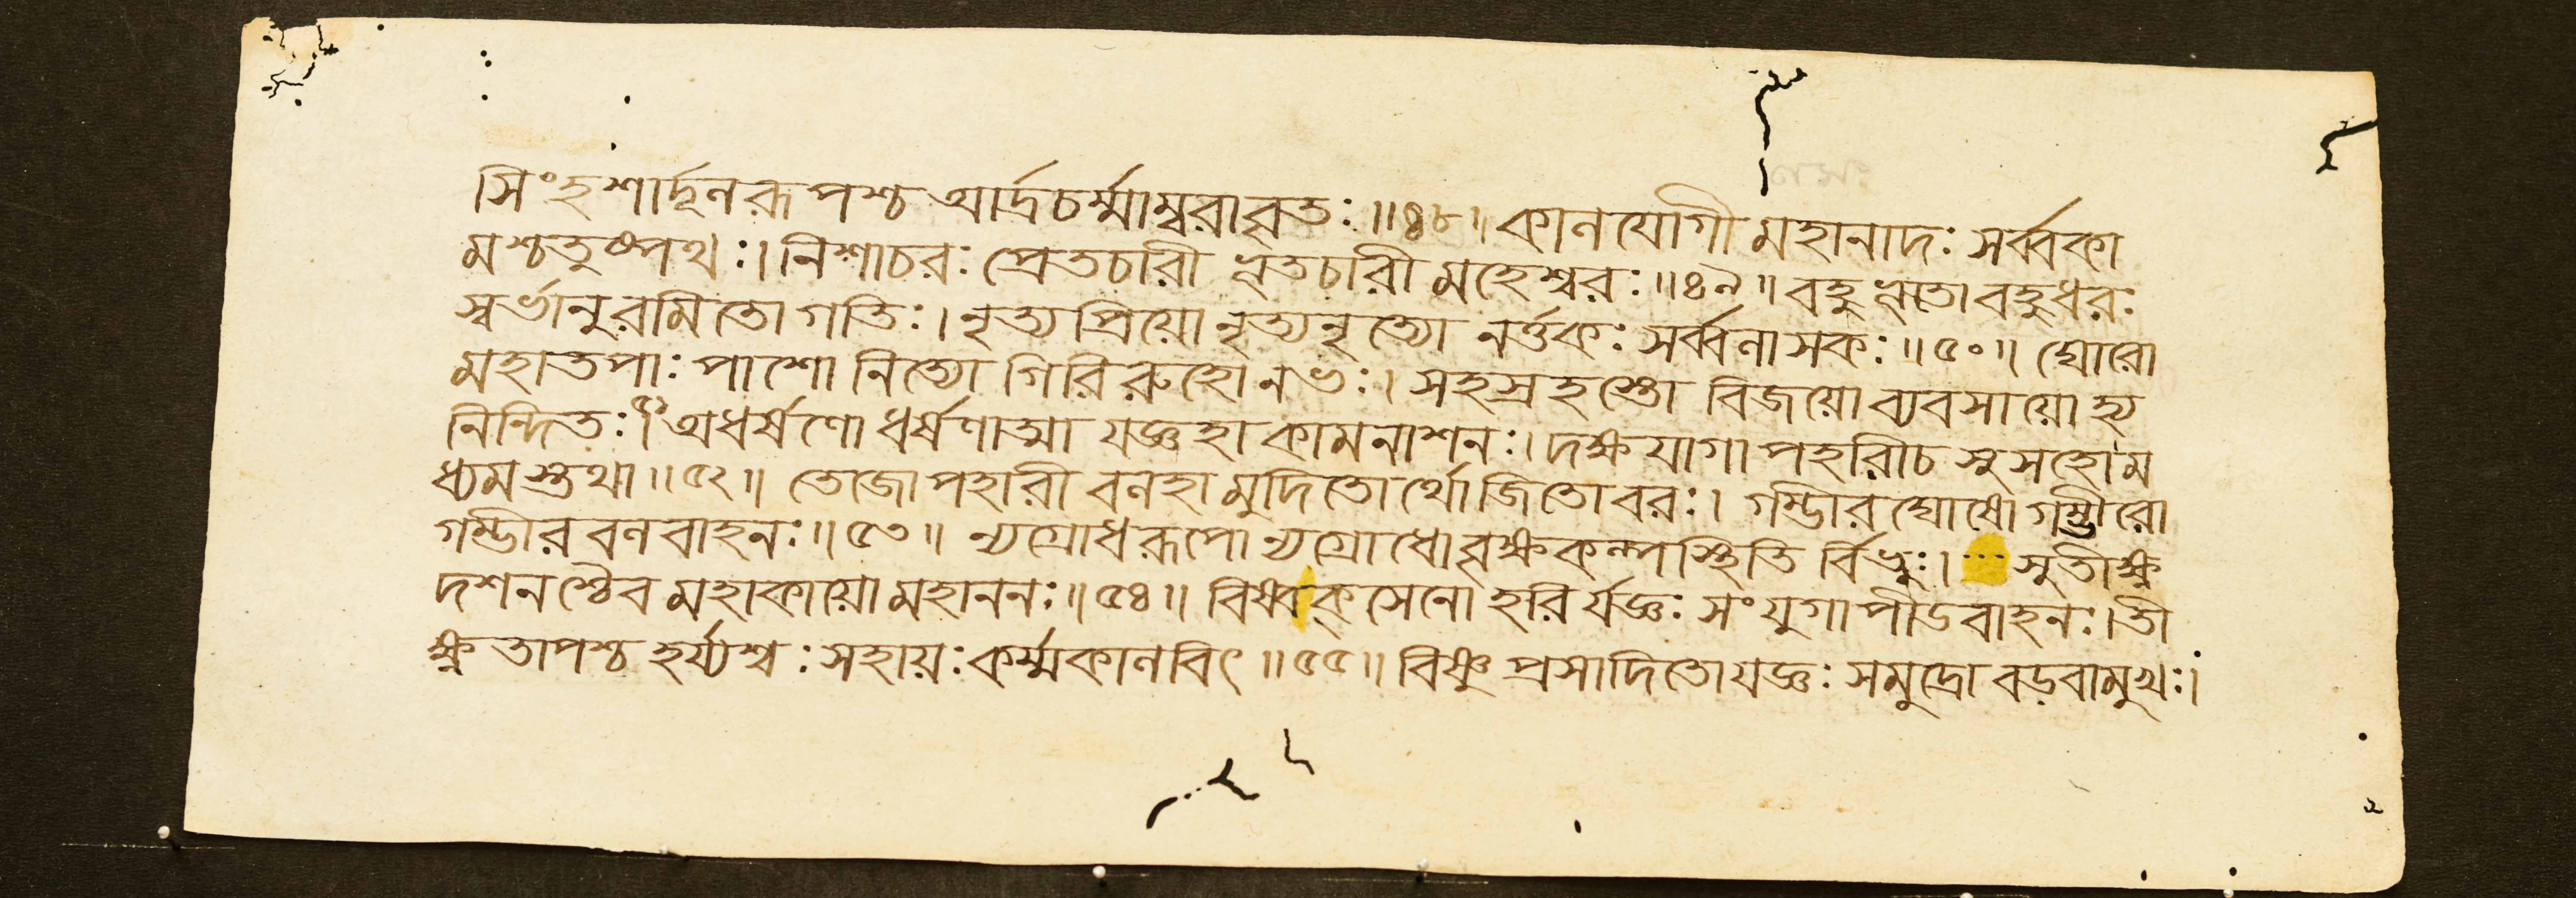 সিংহশার্দূলরূপশ্চ আর্দ্রচর্ম্মাম্বরাবৃতঃ ॥৪৮॥ কালযোগী মহানাদঃ সর্ব্বকা
মশ্চতুষ্পথঃ । নিশাচরঃ প্রেতচারী ভূতচারী মহেশ্বরঃ ॥৪৯॥ বহুভূতো বহুধরঃ
স্বর্ভানুরমিতো গতিঃ । নৃত্যপ্রিয়ো নৃত্যনৃত্যো নর্ত্তকঃ সর্ব্বলাসকঃ ॥৫০॥ ঘোরো
মহাতপাঃ পাশো নিত্যো গিরিরুহো নভঃ । সহস্রহস্তো বিজয়ো ব্যবসায়ো হ্য
নিন্দিতঃ ৫১ অধর্ষণো ধর্ষণাত্মা যজ্ঞহা কামনাশনঃ । দক্ষযাগাপহারী চ সুসহো ম
ধ্যমস্তথা ॥৫২॥ তেজোপহারী বলহা মুদিতোর্থোজিতোবরঃ । গম্ভীরঘোষো গম্ভীরো
গম্ভীরবলবাহনঃ ॥৫৩॥ ন্যগ্রোধরূপো ন্যগ্রোধো বৃক্ষকল্পস্থিতি র্বিভুঃ । ... সুতীক্ষ্ণ
দশনশ্চৈব মহাকায়ো মহাননঃ ॥৫৪॥ বিষ্বক্সেনো হরি র্যজ্ঞঃ সংযুগাপীডবাহনঃ । তী
ক্ষ্ণতাপশ্চ হর্য্যশ্বঃ সহায়ঃ কর্ম্মকালবিৎ ॥৫৫॥ বিষ্ণুপ্রসাদিতো যজ্ঞঃ সমুদ্রো বড়বামুখঃ ।